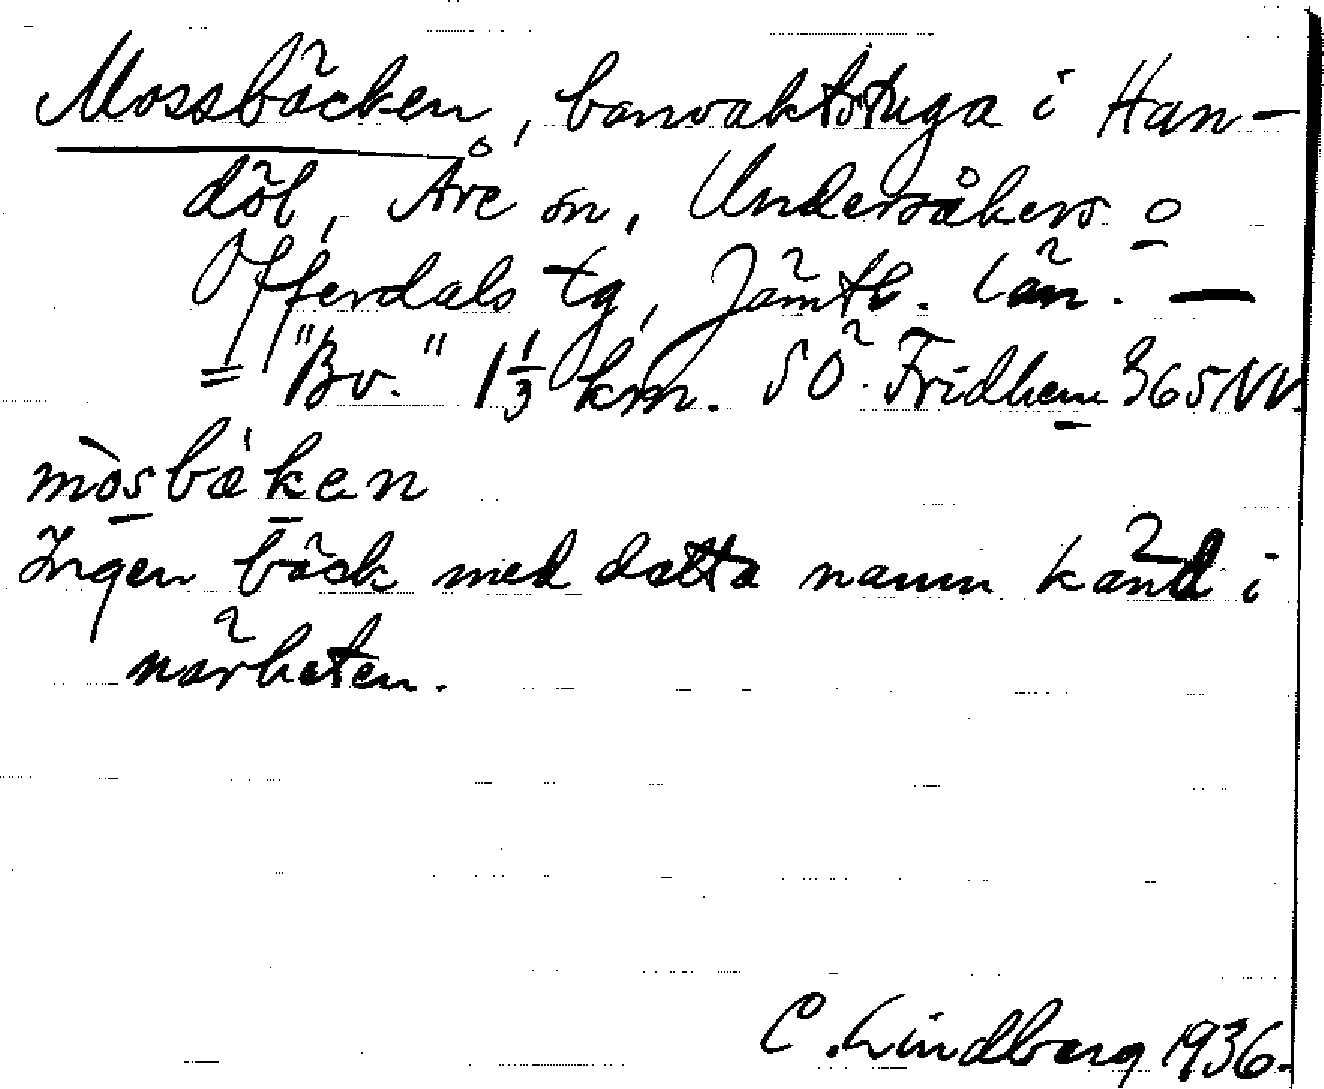 Mossbäcken, banvaktstuga i Han-
döl, Åre sn, Undersåkers o
Offerdals tg, Jämtl. län. —
= "Bv." 1 1/3 km. SÖ. Fridhem 365 NV.
mòsbæken
Ingen bäck med detta namn känd i
närheten.
C. Lindberg 1936.